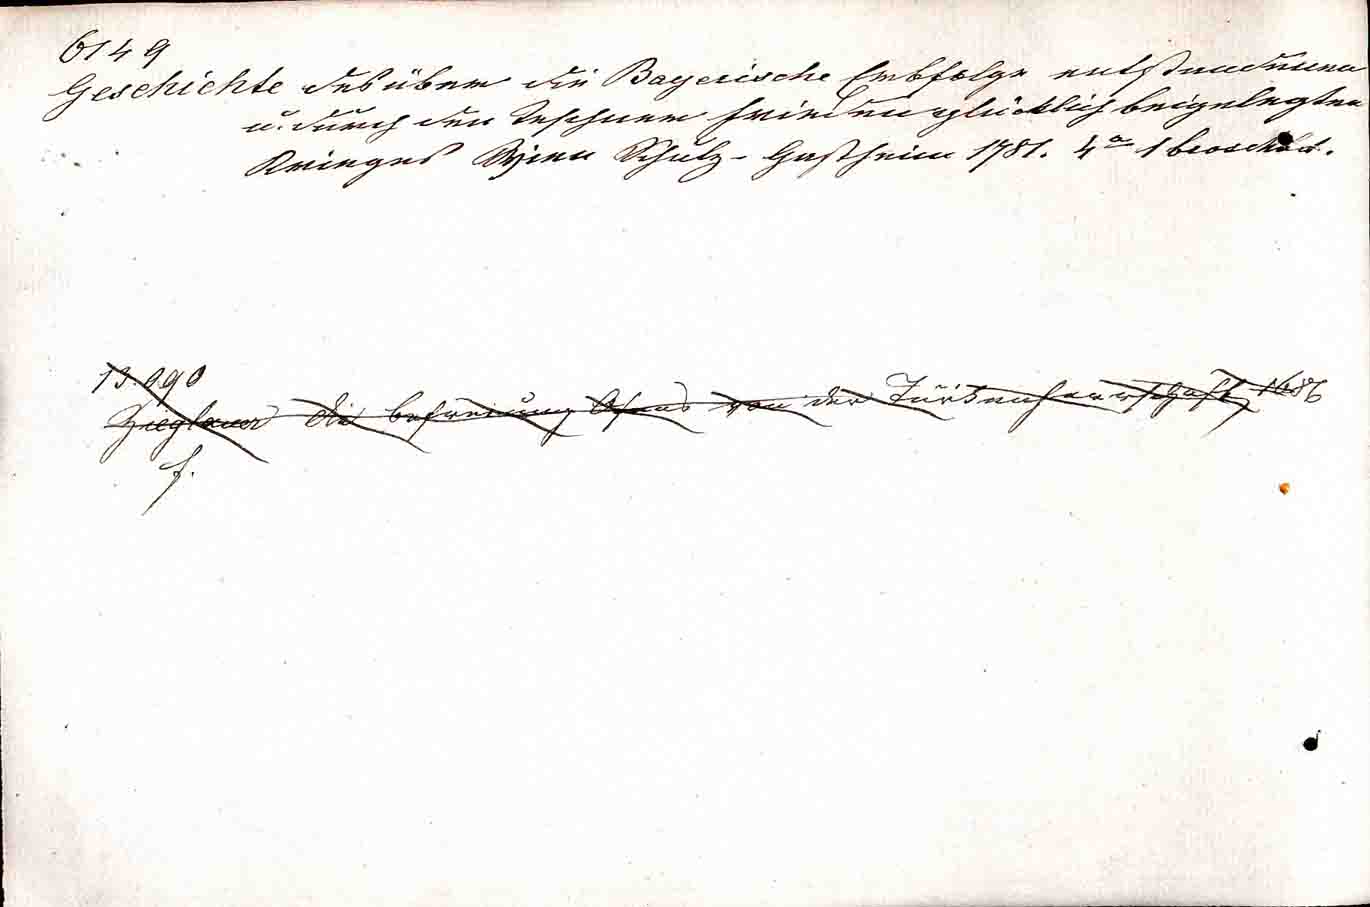 6149
Geschichte des über die Bayerische Erbfolge entstandenen
u. durch den Teschner Frieden glücklich beigelegten
Krieges Wien Schulz-Gastheim 1781. 4° 1 broschürt.
13.090
Zieglauer die befreiung Ofens von der Türkenherrschaft 1686
f.